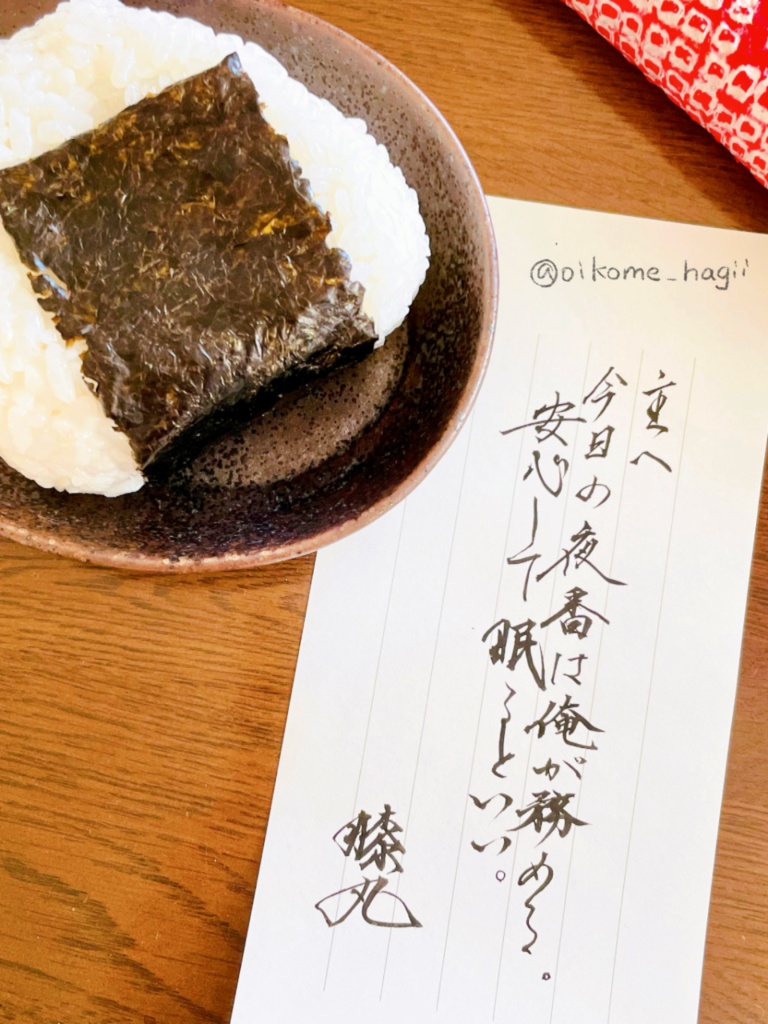 @oikome_hagii
主へ
今日の夜番は俺が務める。
安心して眠るといい。
膝丸